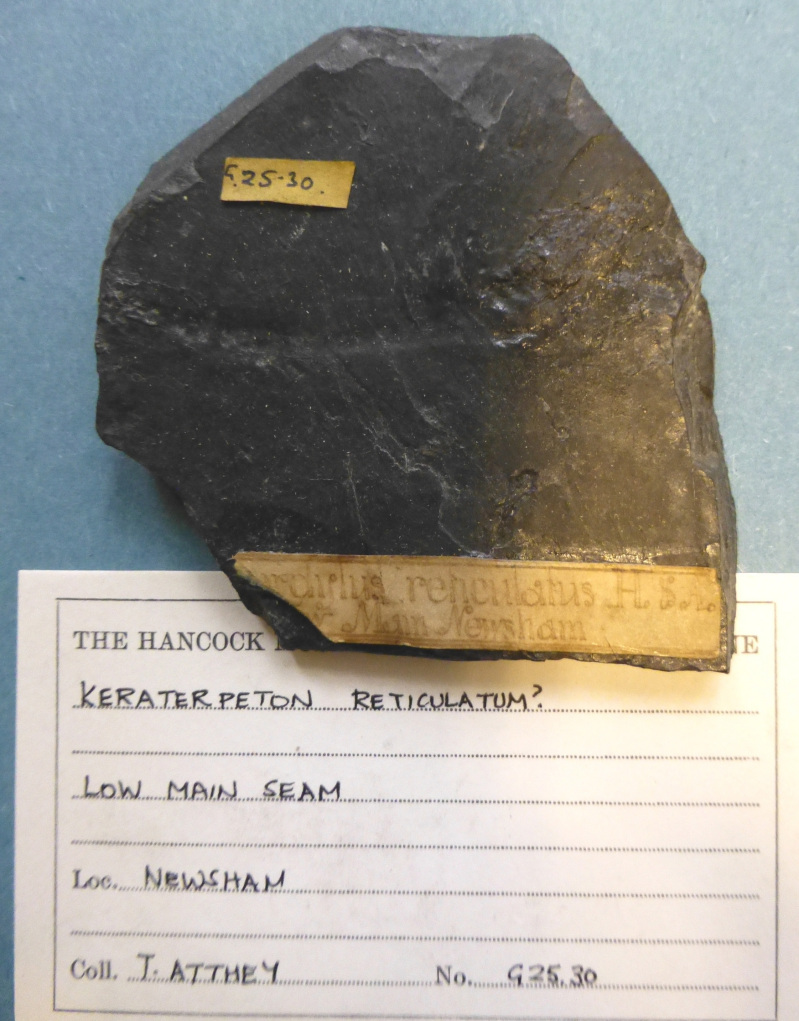 G.25-30.
reticulatus H. & A.
Main Newsham
THE HANCOCK NE
KERATERPETON RETICULATUM?
LOW MAIN SEAM
Loc. NEWSHAM
Coll. T. ATTHEY No. G25.30